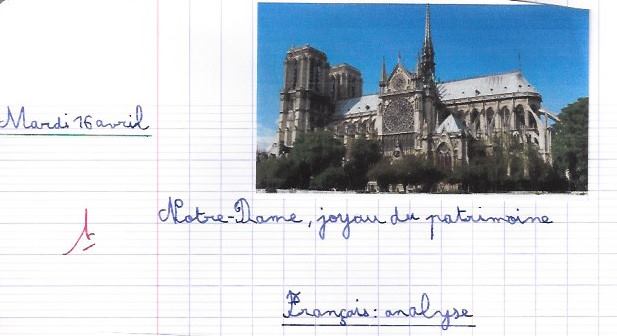 Mardi 16 avril
Notre-Dame, joyau du patrimoine
Français : analyse